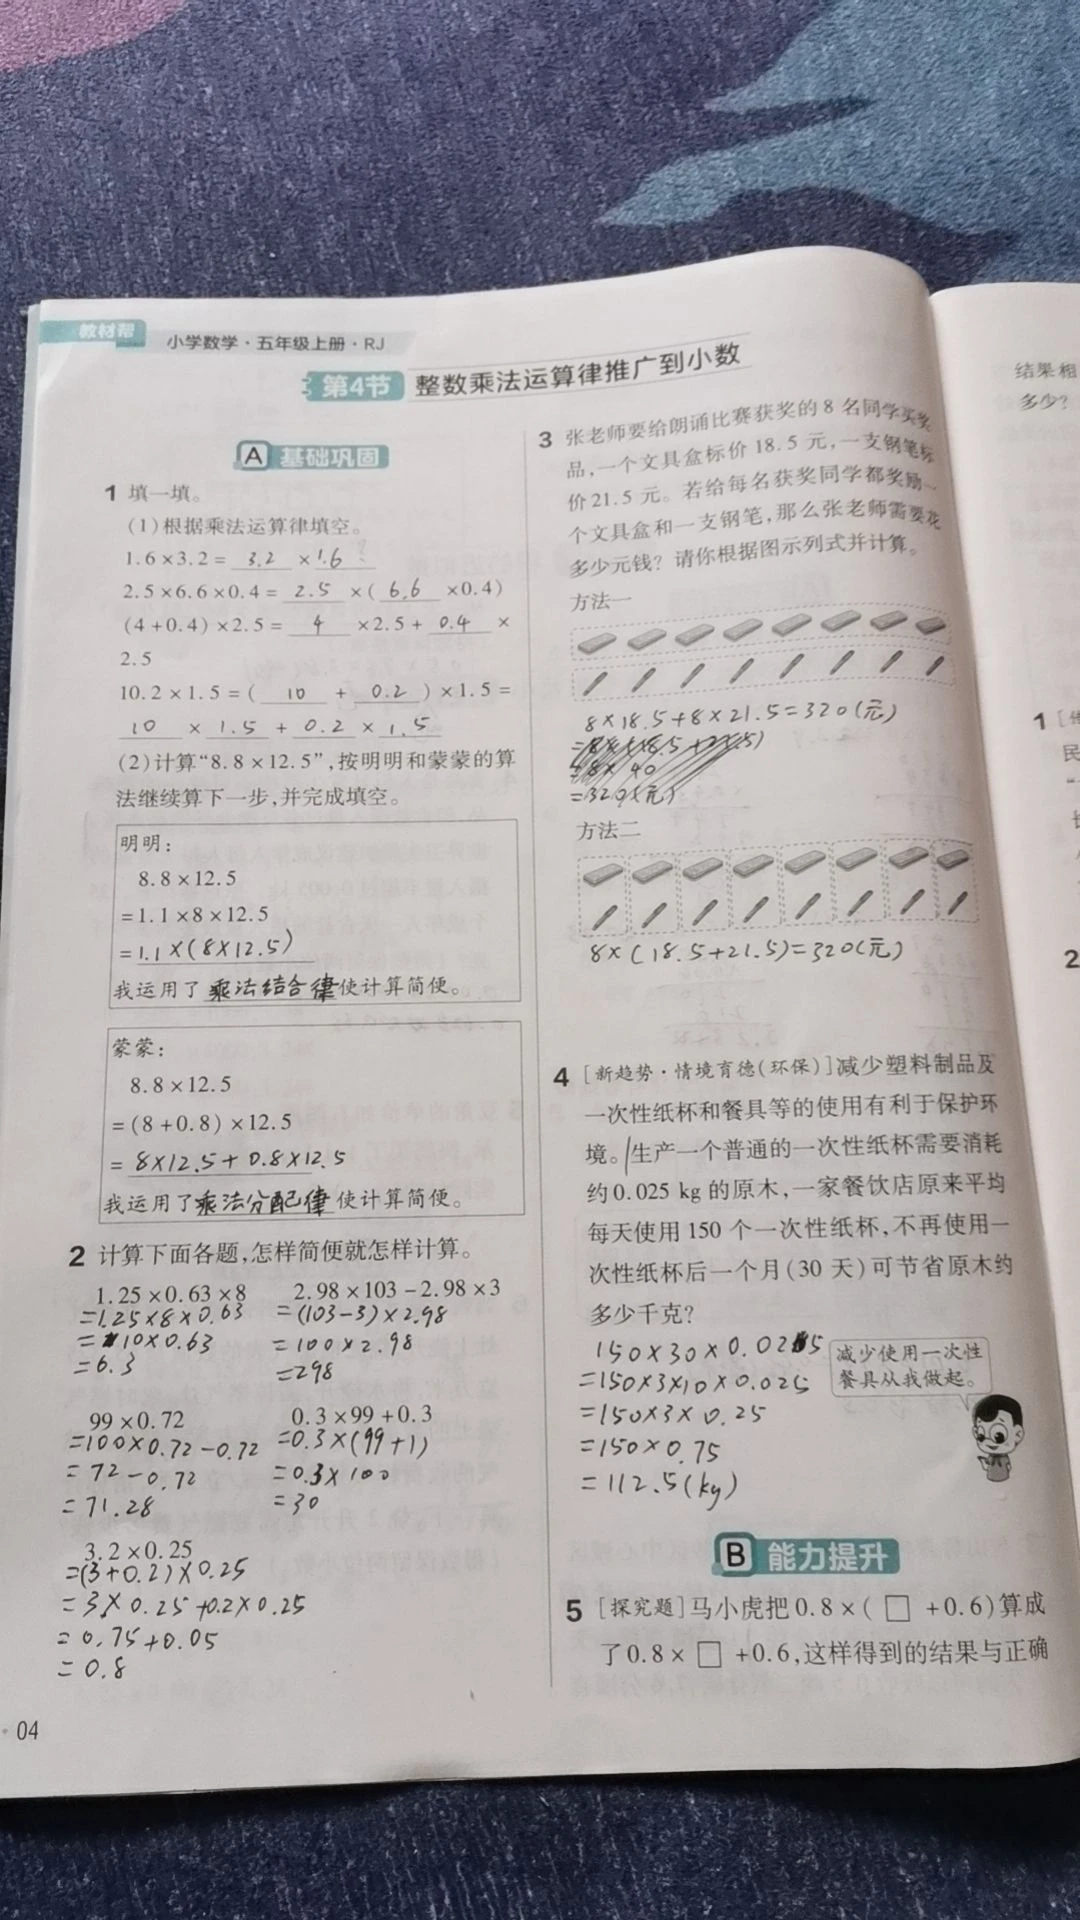 教材帮
小学数学·五年级上册·RJ
第4节 整数乘法运算律推广到小数
A 基础巩固
1 填一填。
(1)根据乘法运算律填空。
1.6×3.2= 3.2 ×1.6
2.5×6.6×0.4= 2.5 ×( 6.6 ×0.4)
(4+0.4)×2.5= 4 ×2.5+ 0.4 ×
2.5
10.2×1.5=( 10 + 0.2 )×1.5=
10 × 1.5 + 0.2 × 1.5
(2)计算“8.8×12.5”,按明明和蒙蒙的算
法继续算下一步,并完成填空。
明明:
8.8×12.5
=1.1×8×12.5
=1.1×(8×12.5)
我运用了 乘法结合律使计算简便。
蒙蒙:
8.8×12.5
=(8+0.8)×12.5
= 8×12.5+0.8×12.5
我运用了乘法分配律 使计算简便。
2 计算下面各题,怎样简便就怎样计算。
1.25×0.63×8
=1.25×8×0.63
=10×0.63
=6.3
2.98×103-2.98×3
=(103-3)×2.98
=100×2.98
=298
99×0.72
=100×0.72-0.72
=72-0.72
=71.28
0.3×99+0.3
=0.3×(99+1)
=0.3×100
=30
3.2×0.25
=(3+0.2)×0.25
=3×0.25+0.2×0.25
=0.75+0.05
=0.8
04
3 张老师要给朗诵比赛获奖的8名同学买奖
品,一个文具盒标价18.5元,一支钢笔标
价21.5元。若给每名获奖同学都奖励一
个文具盒和一支钢笔,那么张老师需要花
多少元钱?请你根据图示列式并计算。
方法一
8×18.5+8×21.5=320(元)
=8×(18.5+21.5)
=8×40
=320(元)
方法二
8×(18.5+21.5)=320(元)
4 [新趋势·情境育德(环保)]减少塑料制品及
一次性纸杯和餐具等的使用有利于保护环
境。生产一个普通的一次性纸杯需要消耗
约0.025 kg的原木,一家餐饮店原来平均
每天使用150个一次性纸杯,不再使用一
次性纸杯后一个月(30天)可节省原木约
多少千克?
150×30×0.025
=150×3×10×0.025
=150×3×0.25
=150×0.75
=112.5(kg)
减少使用一次性
餐具从我做起。
B 能力提升
5 [探究题]马小虎把0.8×( □ +0.6)算成
了0.8× □ +0.6,这样得到的结果与正确
结果相
多少?
1
民
2